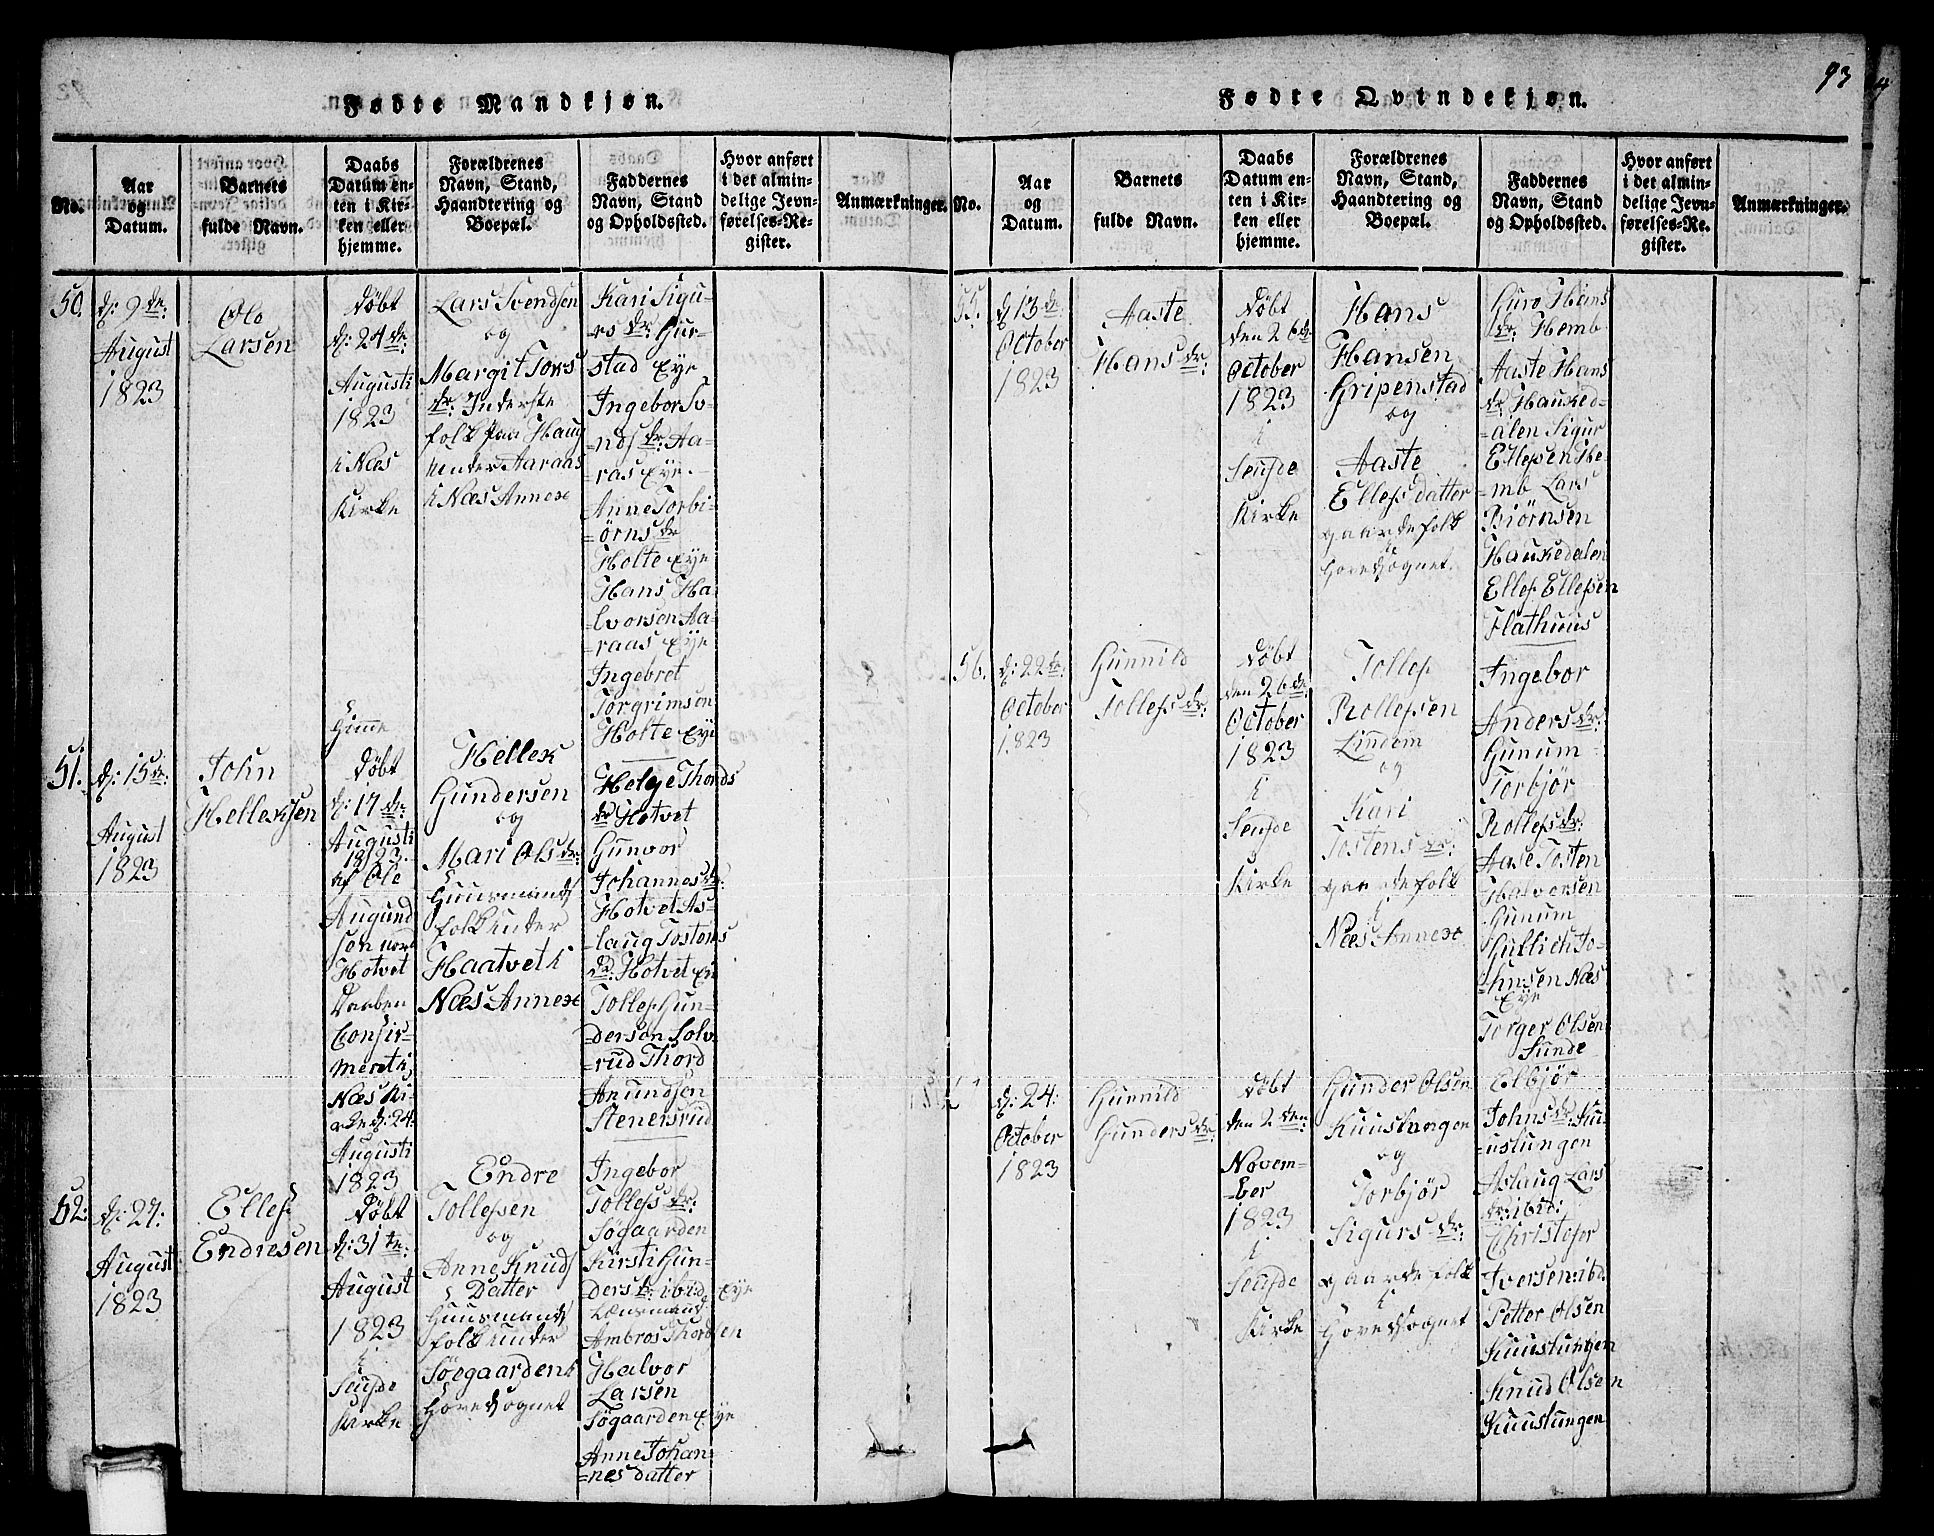 93
Fødte Mandkjøn.
No.
Aar
og
Datum.
Barnets
fulde Navn.
Daabs
Datum en-
ten i Kir-
ken eller
hjemme.
Forældrenes
Navn, Stand,
Haandtering og
Boepæl.
Faddernes
Navn, Stand
og Opholdssted.
Hvor anført
i det almin-
delige Jevn-
førelses-Re-
gister.
Anmærkninger.
50.
d: 9de:
August
1823
Ole
Larsen
Døbt
d: 24de:
Augusti
1823
i Næs
Kirke
Lars Svendsen
og
Margit Tors
dr: Inderste
folk paa Haug
under Aaraas
i Næs Annex
Kari Sigu-
rs dr: Gur-
stad Eye
Ingebor Sv-
=nds dr: Aa-
=ras Eye.
Anne Torbi-
=ørns dr
Holte Eye
Hans Ha-
=lvorsen Aa-
=raas Eye
Ingebret
Torgrimsen
Holte Eye
51.
d: 15de:
August
1823
John
Helleksen
Hjeme
Døbt
d: 17de:
Augusti
1823.
af Ole
Augund
sen nord
Hotvet
Daaben
Confir-
meret i
Næs Ki-
rke d: 24
Augusti
1823
Hellek
Gundersen
og
Mari Ols dr:
Huusmands
folk under
Haatvet i
Næs Annex
Helge Thords
dr Hotvet
Gunvor
Johannes dr:
Hotvet As-
=laug Tostens
dr: Hotvet Ey
Tollef Gun-
=dersen Solv-
=rud Thord
Anundsen
Stenersrud
52.
d: 27:
August
1823
Ellef
Endresen
Døbt
d: 31te:
August
1823
i
Seufde
Kirke
Endre
Tollefsen
og
Anne Knuds
Datter
Huusmands
folk under
Søegaarden i
Hovedsognet
Ingebor
Tollefs dr:
Søgaarden
Kirsti Gun-
ders dr: ibid Eye
Lænsmand
Ambros Thordsen
Halvor
Larsen
Søgaarden Eye
Anne Johan-
=nesdatter
Fødte Qvindekjøn.
No.
Aar
og
Datum.
Barnets
fulde Navn.
Daabs
Datum en-
ten i Kir-
ken eller
hjemme.
Forældrenes
Navn, Stand,
Haandtering og
Boepæl.
Faddernes
Navn, Stand
og Opholdssted.
Hvor anført
i det almin-
delige Jevn-
førelses-Re-
gister.
Anmærkninger.
55.
d: 13de:
October
1823
Aaste
Hans dr:
Døbt
den 26de
October
1823
i
Seufde
Kirke
Hans
Hansen
Gripenstad
og
Aaste
Ellefs datter
gaardefolk
i
Hovedsognet.
Guro Hans
dr: Hemb
Aaste Hans
dr Hauked-
=alen Sigur
Ellefsen He-
=mb Lars
Biørnsen
Haukedalen
Ellef Ellefsen
Flathuus
56.
d: 22de:
October
1823
Gunnild
Tollefs dr:
Døbt
den 26de:
October
1823
i
Seufde
Kirke
Tollef
Rollefsen
Lindem
og
Kari
Tostens dr:
gaardefolk
i
Næs Annex
Ingebor
Anders dr:
Gunum-
Torbjør
Rollefs dr:
Aase Tosten
Halvorsen
Gunum
Gullich Jo-
=hnsen Næs
Eye
Torger Olsen
Sunde
d: 24:
October
1823
Gunnild
Gunders dr:
Døbt
den 2den:
Novem-
=ber
1823
i
Seufde
Kirke
Gunder Olsen
Kuuslungen
og
Torbjør
Sigurs dr:
gaardefolk
i
Hovedsognet
Elbjør
Johns dr: Ku-
=uslungen
Aslaug Lars
dr: ibid:
Christofer
Iversen: ibd
Petter Olsen
Kuuslungen
Knud Olsen
Kuuslungen